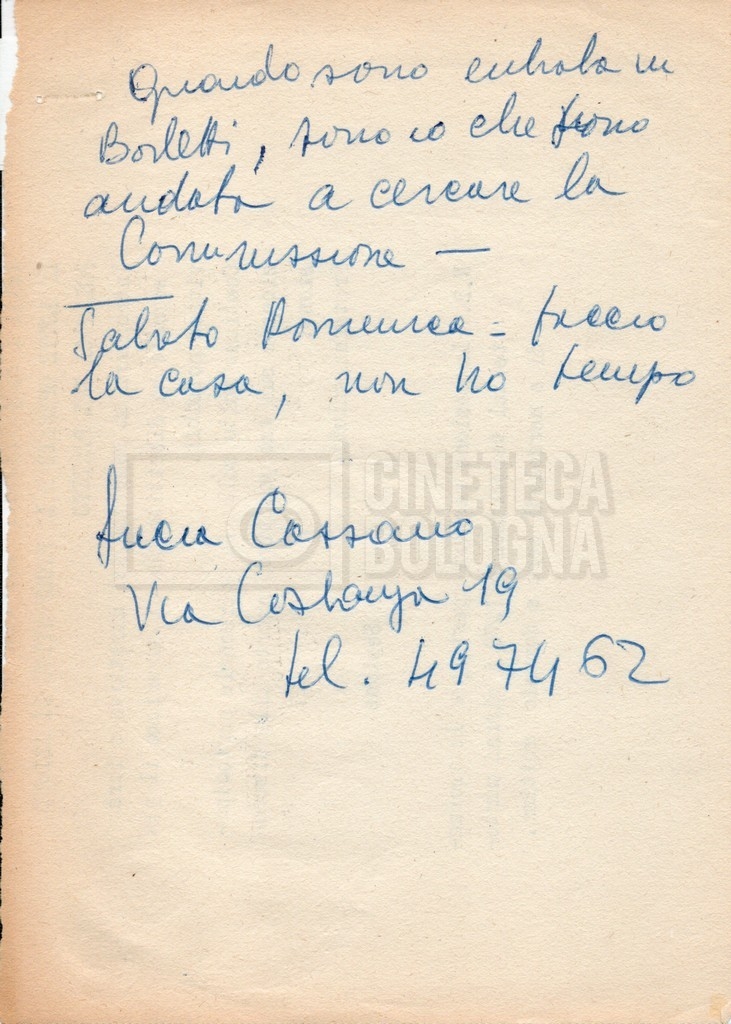 Quando sono entrata in
Borletti, sono io che sono
andata a cercare la
Commissione —
Sabato Domenica = faccio
la casa, non ho tempo
CINETECA
BOLOGNA
Lucia Cassano
Via Costanza 19
tel. 49 74 62